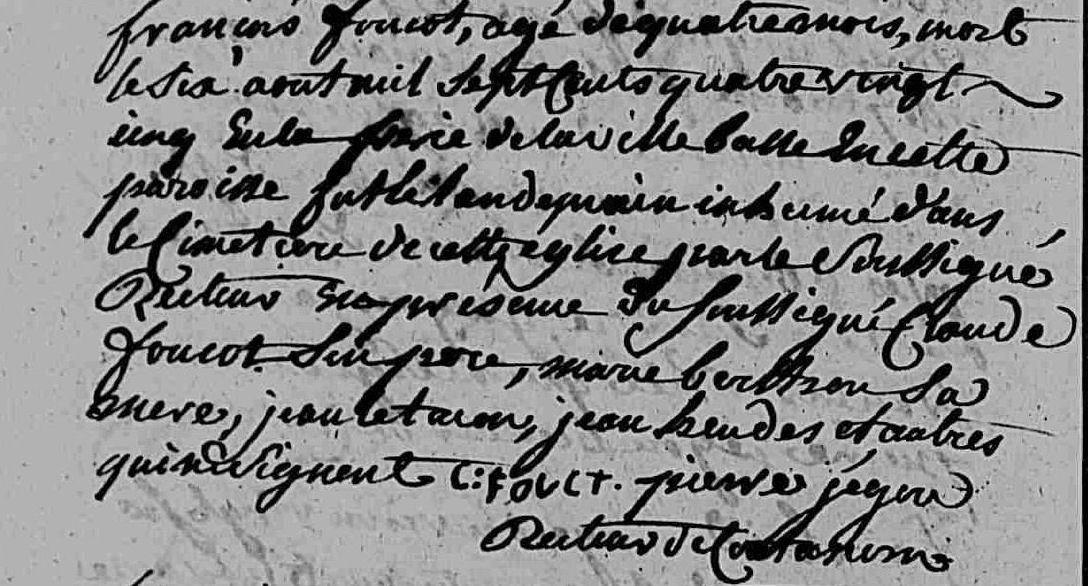 françois foucot, agé de quatre mois, mort
le six aout mil sept cents quatre vingt
cinq en la frerie de la ville basse en cette
paroisse fut le landemain inhumé dans
le Cimetiere de cette église par le soussigné
Recteur en presence du soussigné Claude
foucot son pere, marie berthou sa
mere, jean, jean et autres
qui ne signent C: FOUCT. pierre jégou
Recteur de